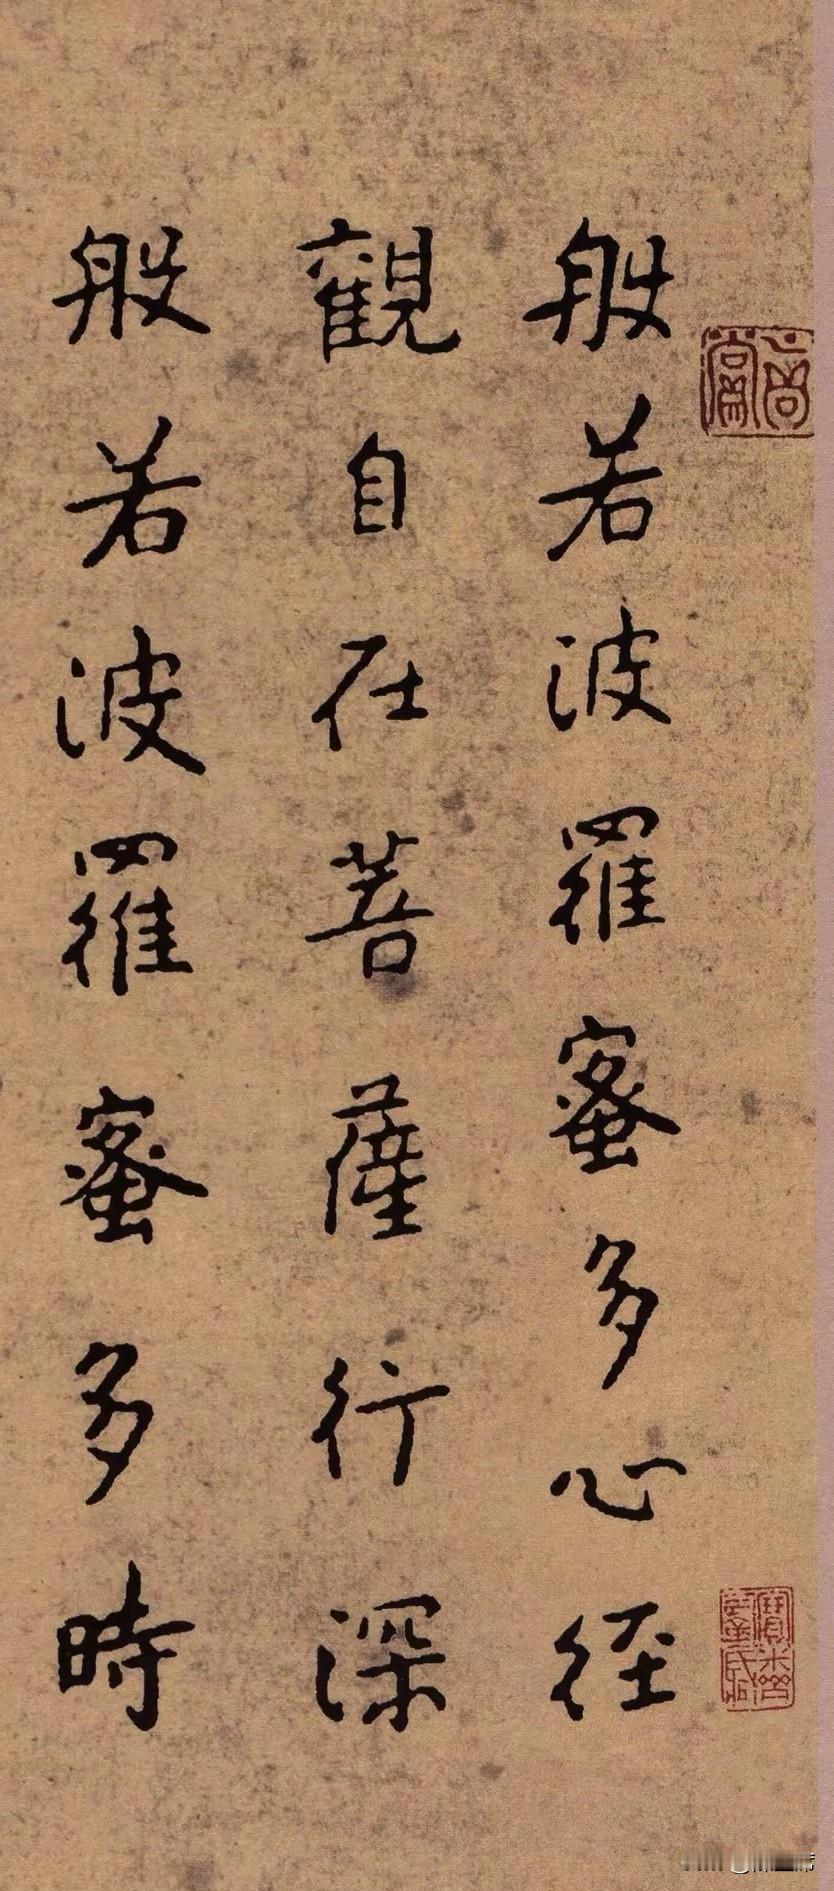 般若波羅蜜多心径
觀自在菩薩行深
般若波羅蜜多時